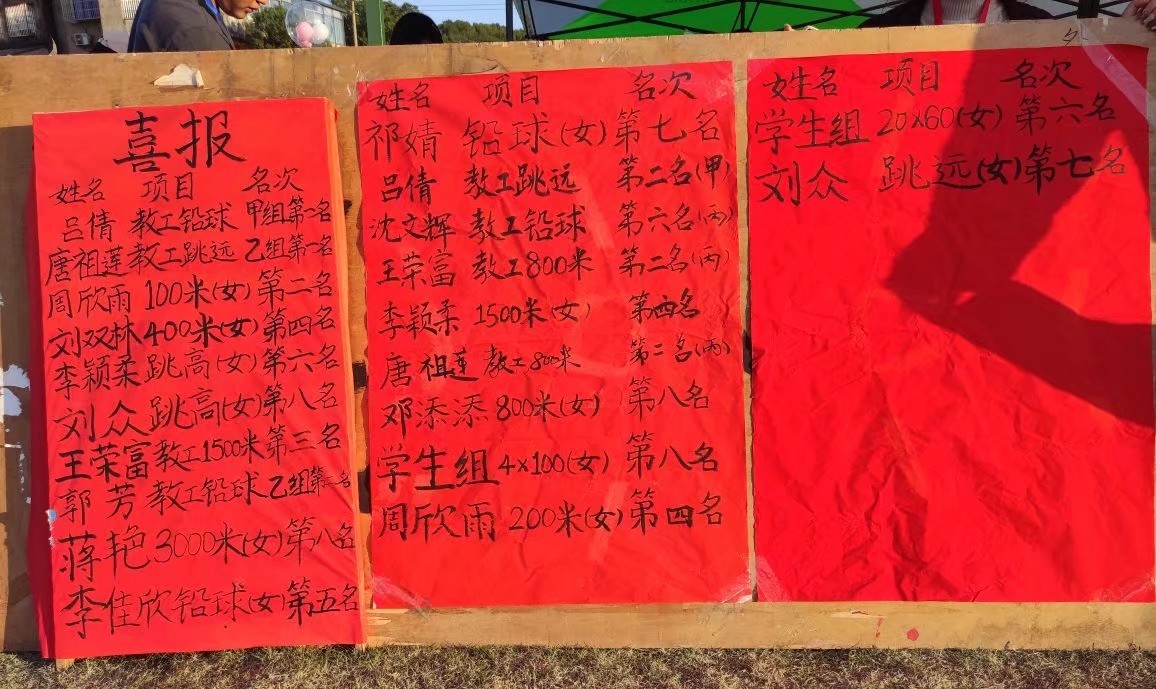 喜报
姓名 项目 名次
吕倩 教工铅球 甲组第一名
唐祖莲 教工跳远 乙组第一名
周欣雨 100米(女) 第二名
刘双林 400米(女) 第四名
李颖柔 跳高(女) 第六名
刘众 跳高(女) 第八名
王荣富 教工1500米 第三名
郭芳 教工铅球 乙组第二名
蒋艳 3000米(女) 第八名
李佳欣 铅球(女) 第五名
姓名 项目 名次
祁婧 铅球(女) 第七名
吕倩 教工跳远 第二名(甲)
沈文辉 教工铅球 第六名(丙)
王荣富 教工800米 第二名(丙)
李颖柔 1500米(女) 第四名
唐祖莲 教工800米 第二名(丙)
邓添添 800米(女) 第八名
学生组 4x100(女) 第八名
周欣雨 200米(女) 第四名
姓名 项目 名次
学生组 20x60(女) 第六名
刘众 跳远(女) 第七名